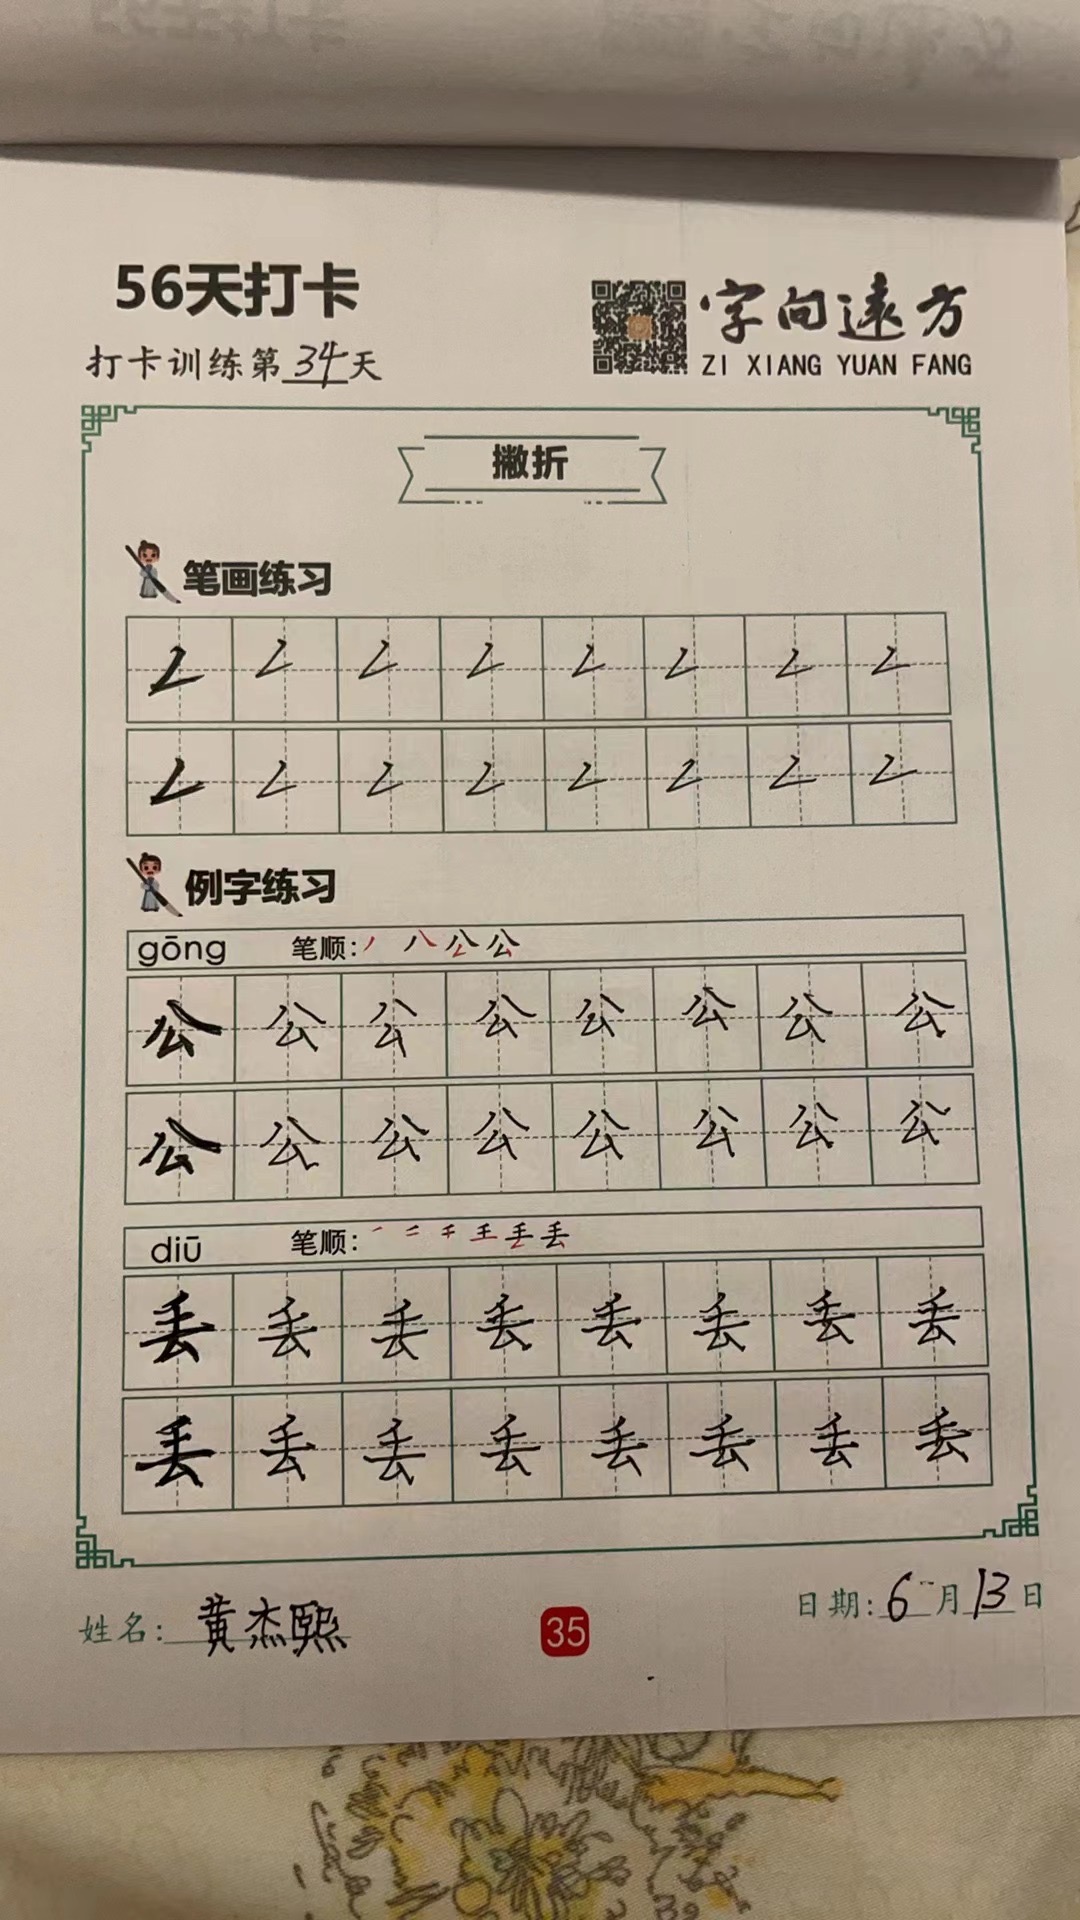 56天打卡
字向远方
打卡训练第34天
ZI XIANG YUAN FANG
撇折
笔画练习
𠃋 𠃋 𠃋 𠃋 𠃋 𠃋 𠃋 𠃋
𠃋 𠃋 𠃋 𠃋 𠃋 𠃋 𠃋 𠃋
例字练习
gōng 笔顺: 丿 八 公 公
公 公 公 公 公 公 公 公
公 公 公 公 公 公 公 公
diū 笔顺: 丿 二 千 王 丢 丢
丢 丢 丢 丢 丢 丢 丢 丢
丢 丢 丢 丢 丢 丢 丢 丢
姓名: 黄杰熙
35
日期: 6月13日